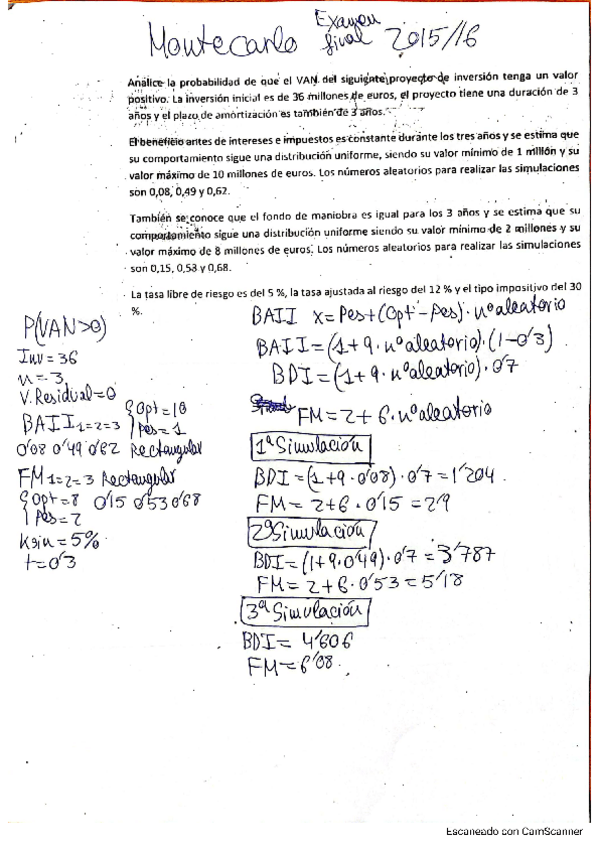 Montecarlo Examen final 2015/16
Analice la probabilidad de que el VAN del siguiente proyecto de inversión tenga un valor
positivo. La inversión inicial es de 36 millones de euros, el proyecto tiene una duración de 3
años y el plazo de amortización es también de 3 años.
El beneficio antes de intereses e impuestos es constante durante los tres años y se estima que
su comportamiento sigue una distribución uniforme, siendo su valor mínimo de 1 millón y su
valor máximo de 10 millones de euros. Los números aleatorios para realizar las simulaciones
son 0,08, 0,49 y 0,62.
También se conoce que el fondo de maniobra es igual para los 3 años y se estima que su
comportamiento sigue una distribución uniforme siendo su valor mínimo de 2 millones y su
valor máximo de 8 millones de euros. Los números aleatorios para realizar las simulaciones
son 0,15, 0,53 y 0,68.
La tasa libre de riesgo es del 5 %, la tasa ajustada al riesgo del 12 % y el tipo impositivo del 30
%.
P(VAN>0)
Inv = 36
n = 3
V. Residual = 0
BAII 1=2=3 { Opt = 10
Pes = 1
0'08 0'49 0'62 Rectangular
FM 1=2=3 Rectangular
{ Opt = 8 0'15 0'53 0'68
Pes = 2
Ksin = 5%
t = 0'3
BAII x = Pes + (Opt - Pes) · nº aleatorio
BAII = (1 + 9 · nº aleatorio) · (1 - 0'3)
BDI = (1 + 9 · nº aleatorio) · 0'7
FM = 2 + 6 · nº aleatorio
1ª Simulación
BDI = (1 + 9 · 0'08) · 0'7 = 1'204
FM = 2 + 6 · 0'15 = 2'9
2ª Simulación
BDI = (1 + 9 · 0'49) · 0'7 = 3'787
FM = 2 + 6 · 0'53 = 5'18
3ª Simulación
BDI = 4'606
FM = 6'08
Escaneado con CamScanner